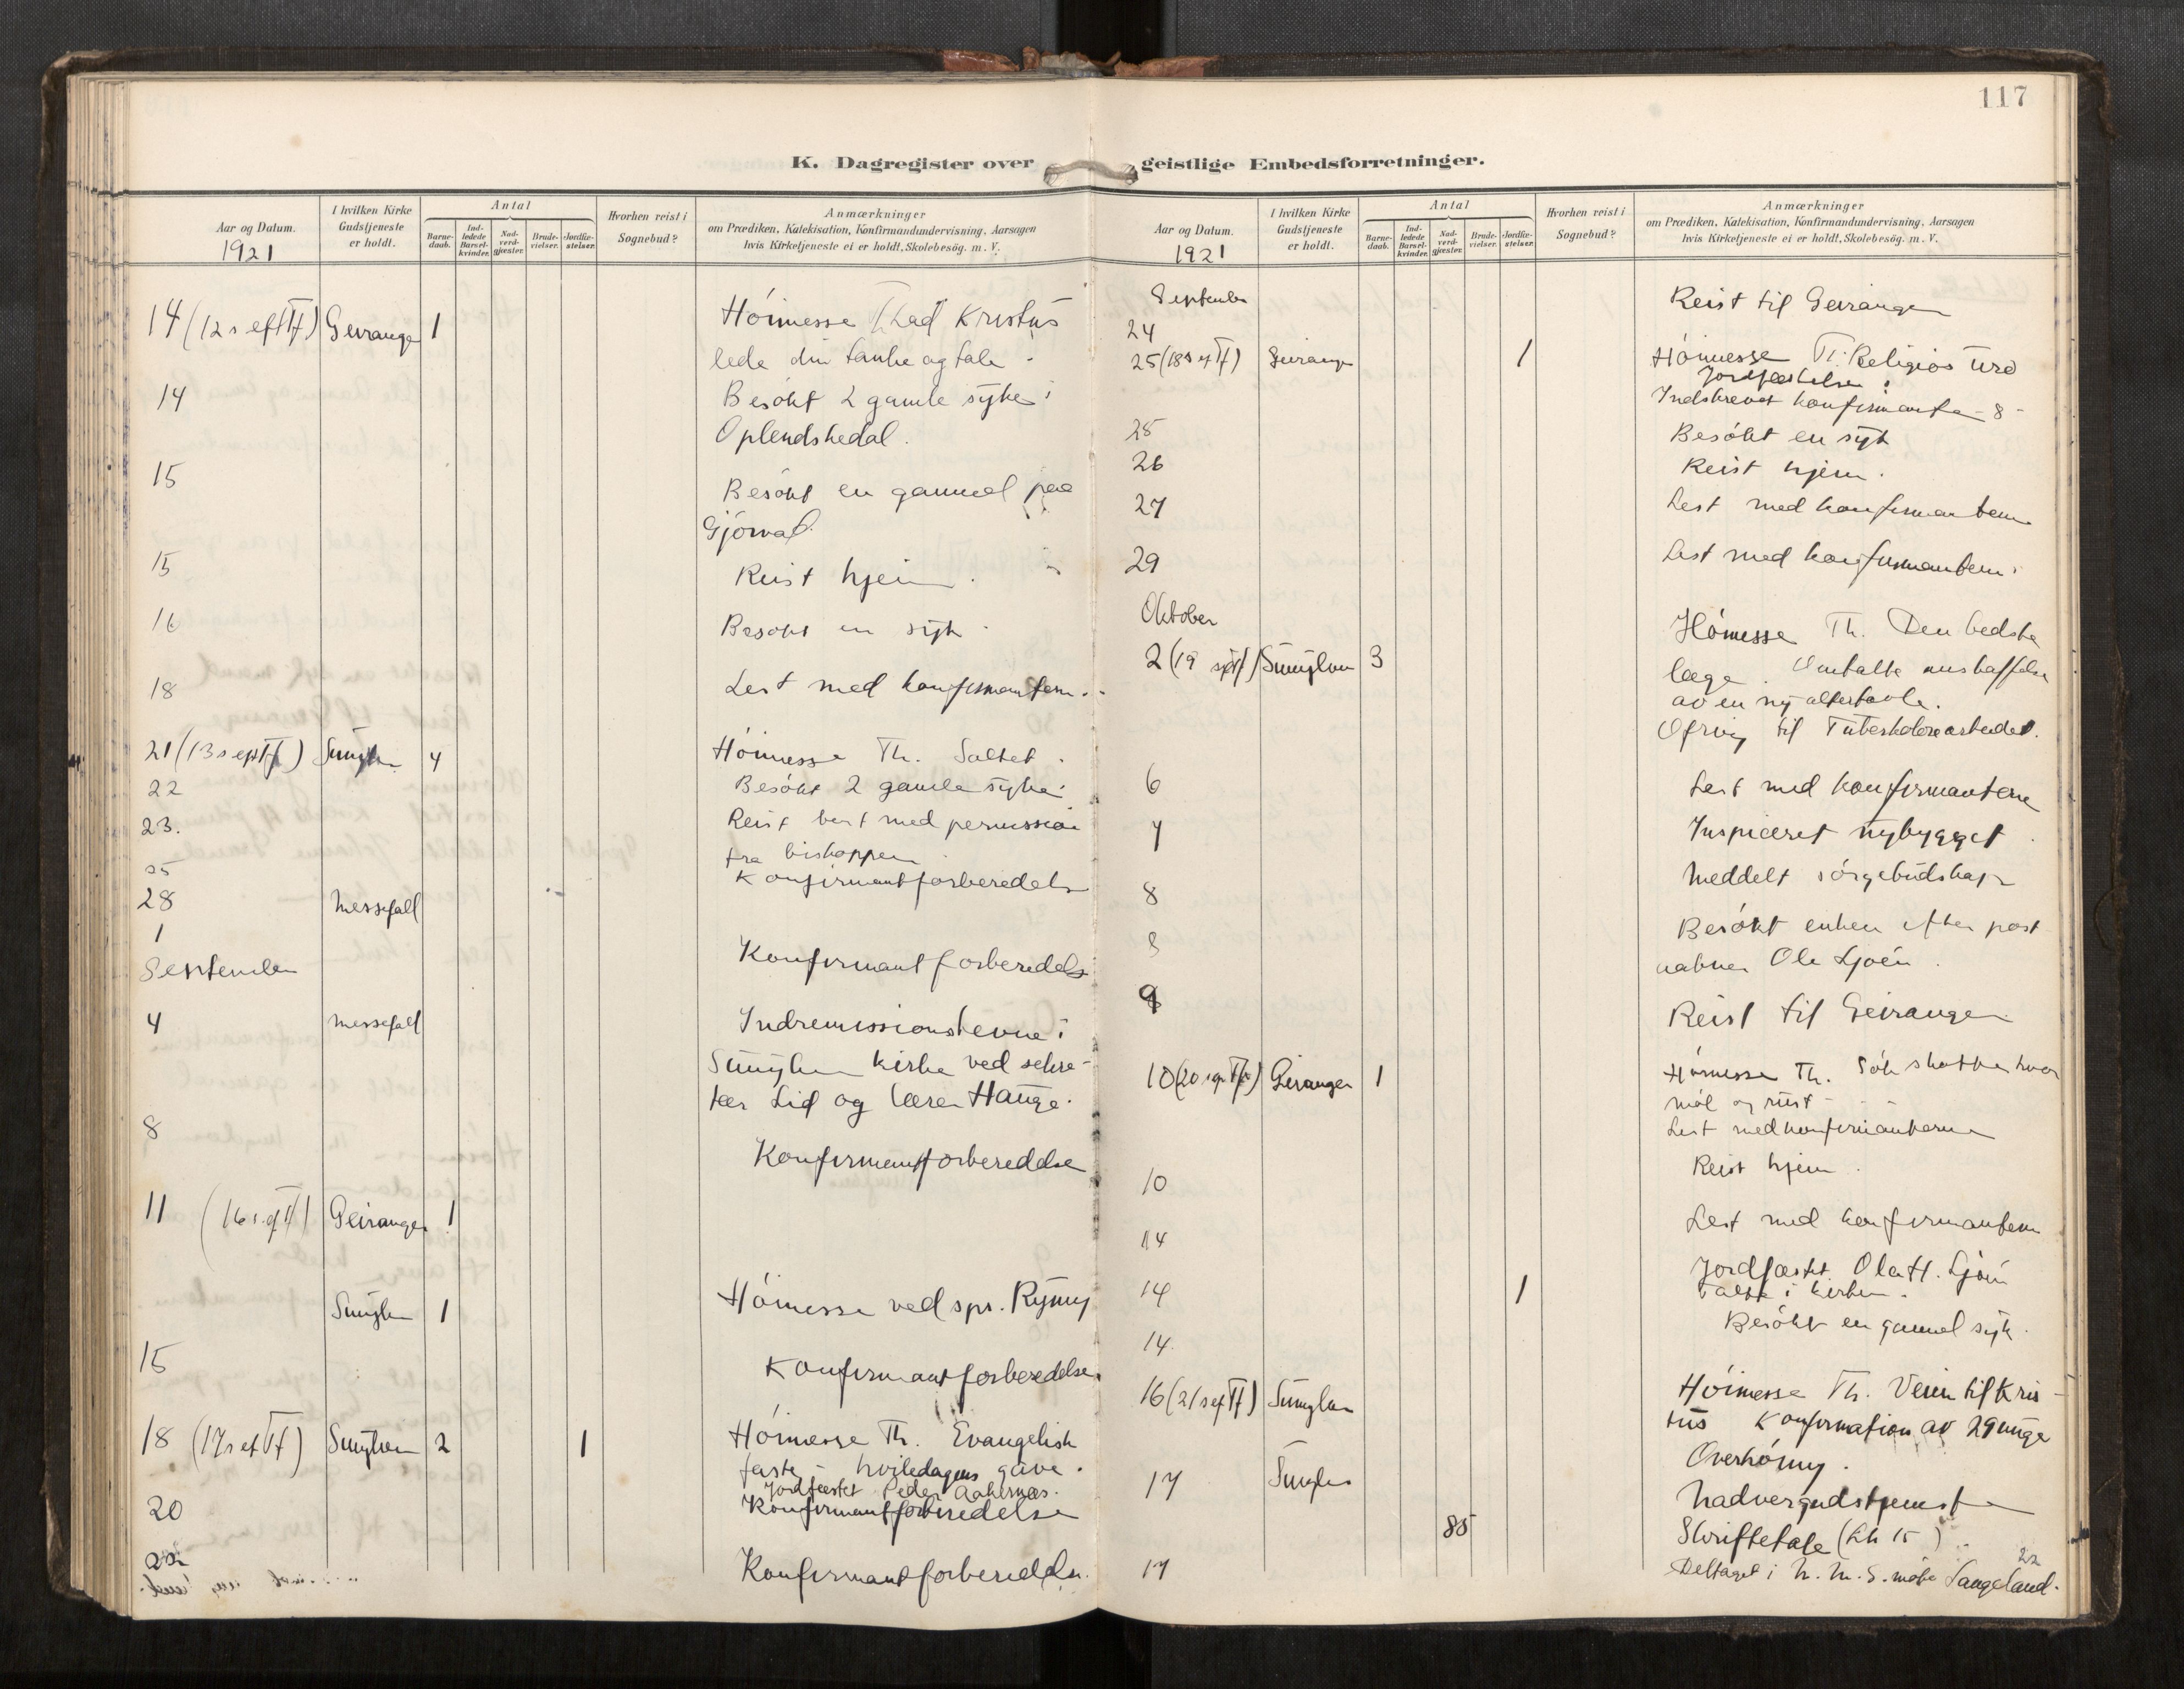 117
K. Dagregister over geistlige Embedsforretninger.
Aar og Datum.
1921
I hvilken Kirke Gudstjeneste er holdt.
Antal
Barne-daab.
Ind-ledede Barsel-kvinder.
Nad-verd-gjæster.
Brude-vielser.
Jordfæ-stelser.
Hvorhen reist i Sognebud?
Anmærkninger
om Prædiken, Katekisation, Konfirmandundervisning, Aarsagen
hvis Kirketjeneste ei er holdt, Skolebesög. m. V.
14 (12 s ef Tf) Geiranger 1 Höimesse Th Lad Kristus
lede din tanke og tale
14 Besökt 2 gamle syke i
Oplendskedal.
15 Besökt en gammel paa
Gjörval.
15 Reist hjem.
16 Besökt en syk
18 Lest med konfirmantene.
21 (13 s eft Tf) Sunylven 4 Höimesse Th. Saltet.
22 Besökt 2 gamle syke
23. Reist bort med permission
fra biskoppen
25 Konfirmantforberedelse
28 Messefall
1
September Konfirmantforberedelse
4 messefall Indremissionsstevne i
Sunylven kirke ved sekre-
tær Lid og lærer Hauge.
8 Konfirmantforberedelse
11 (16 s. ef Tf) Geiranger 1
Sunylven 1 Höimesse ved spr. Ryning
15 Konfirmantforberedelse
18 (17 s ef Tf) Sunylven 2 1 Höimesse Th. Evangelisk
faste - hviledagens gave.
Jordfæstet Peder Aakernæs.
20 Konfirmantforberedelse
22 Konfirmantforberedelse.
Aar og Datum.
1921
I hvilken Kirke Gudstjeneste er holdt.
Antal
Barne-daab.
Ind-ledede Barsel-kvinder.
Nad-verd-gjæster.
Brude-vielser.
Jordfæ-stelser.
Hvorhen reist i Sognebud?
Anmærkninger
om Prædiken, Katekisation, Konfirmandundervisning, Aarsagen
hvis Kirketjeneste ei er holdt, Skolebesög. m. V.
September
24 Reist til Geiranger
25 (18 s ef Tf) Geiranger 1 Höimesse Th: Religiös uro
Jordfæstelse
Indskrevet konfirmanter - 8 -
25 Besökt en syk
26 Reist hjem.
27 Lest med konfirmantene
29 Lest med konfirmantene
Oktober
2 (19 s ef Tf) Sunylven 3 Höimesse Th. Den bedste
læge. Omtalte anskaffelse
av en ny altertavle.
Ofring til Tuberkolosearbeidet.
6 Lest med konfirmantene
7 Inspiceret nybygget
8 Meddelt sörgebudskap
8 Besökt enken efter post
aabner Ole Ljöen.
9 Reist til Geiranger
10 (20 s ef Tf) Geiranger 1 Höimesse Th. Søk skatter hvor
möl og rust - - -
Lest med konfirmanterne
10 Reist hjem.
14 Lest med konfirmantene
14 1 Jordfæstet Ola H. Ljöen
Talte i kirken.
14. Besökt en gammel syk.
16 (21 s ef Tf) Sunylven Höimesse Th. Veien til Kris-
tus Konfirmation av 29 unge
17 Sunylven Overhöring.
Nadvergudstjeneste
85 Skriftetale (Lk 15)
17 Deltaget i N. M. S. möte Langeland.
22